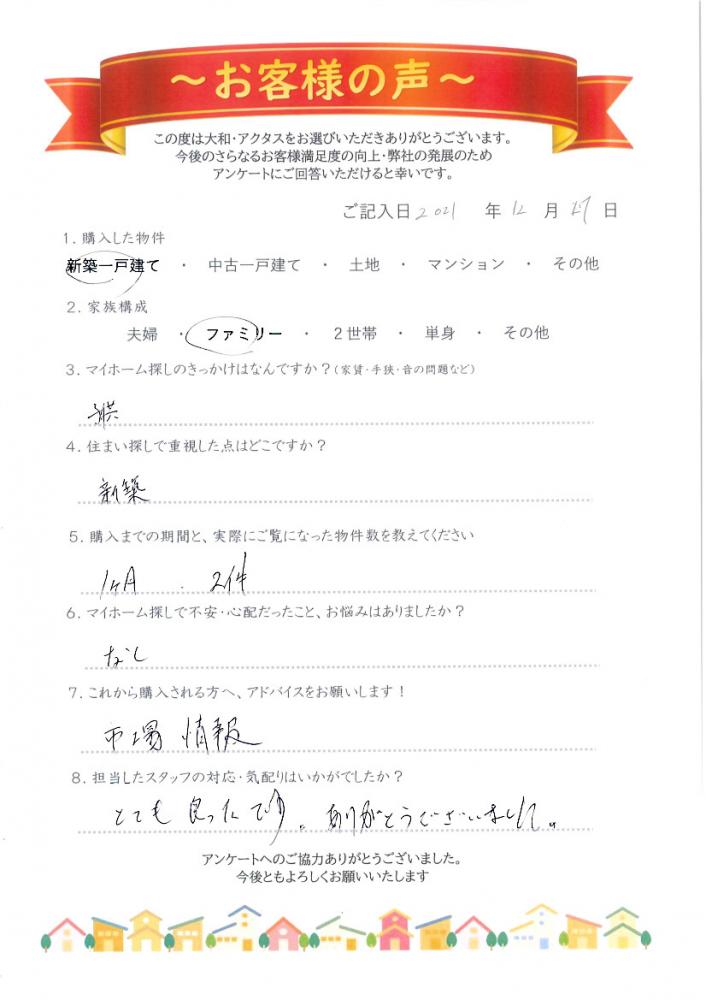 ～お客様の声～
この度は大和・アクタスをお選びいただきありがとうございます。
今後のさらなるお客様満足度の向上・弊社の発展のため
アンケートにご回答いただけると幸いです。
ご記入日 2021 年 12 月 27 日
1. 購入した物件
新築一戸建て ・ 中古一戸建て ・ 土地 ・ マンション ・ その他
2. 家族構成
夫婦 ・ ファミリー ・ 2世帯 ・ 単身 ・ その他
3. マイホーム探しのきっかけはなんですか？（家賃・手狭・音の問題など）
4. 住まい探しで重視した点はどこですか？
新築
5. 購入までの期間と、実際にご覧になった物件数を教えてください
1ヶ月 . 2件
6. マイホーム探しで不安・心配だったこと、お悩みはありましたか？
なし
7. これから購入される方へ、アドバイスをお願いします！
市場 情報
8. 担当したスタッフの対応・気配りはいかがでしたか？
とても 良ったです。ありがとうございました。
アンケートへのご協力ありがとうございました。
今後ともよろしくお願いいたします